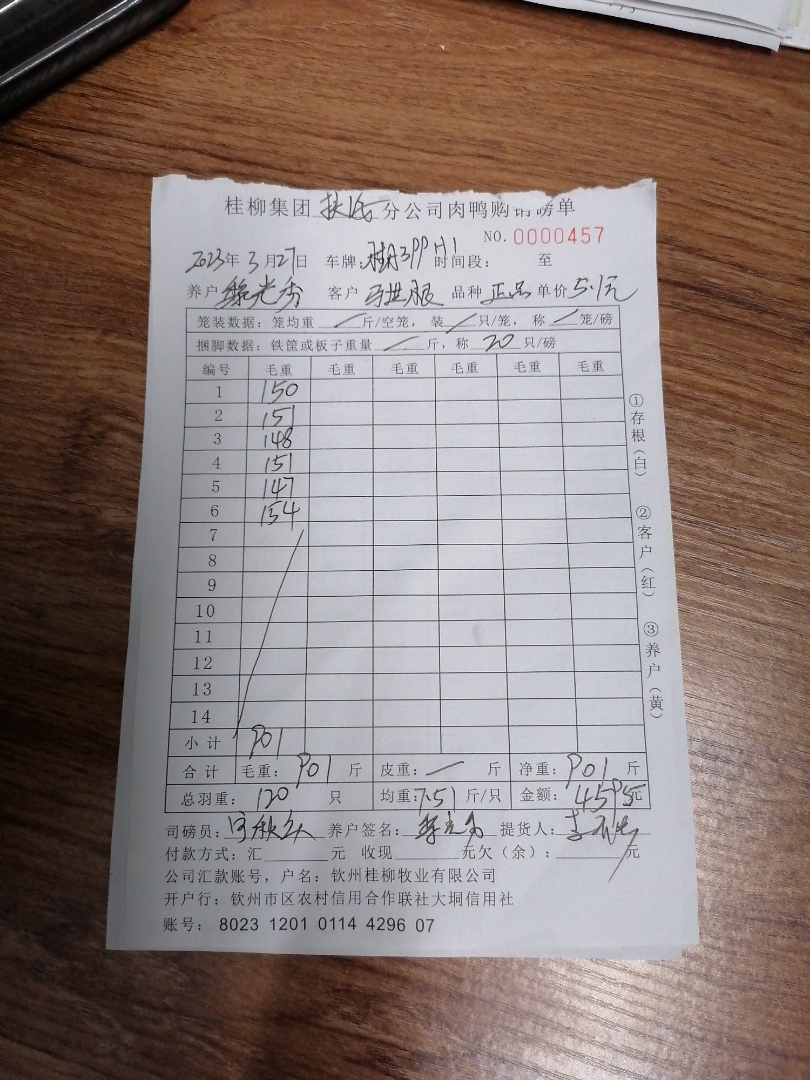 桂柳集团 分公司肉鸭购销磅单
NO. 0000457
2023年3月27日 车牌: 时间段: 至
养户 客户 品种 正品 单价 5.1元
笼装数据: 笼均重 / 斤/空笼, 装 / 只/笼, 称 / 笼/磅
捆脚数据: 铁筐或板子重量 / 斤, 称 20 只/磅
编号 毛重 毛重 毛重 毛重 毛重 毛重
1 150
2 151
3 148
4 151
5 147
6 154
7
8
9
10
11
12
13
14
小计 901
合计 毛重: 901 斤 皮重: / 斤 净重: 901 斤
总羽重: 120 只 均重: 7.51 斤/只 金额: 4595元
司磅员: 养户签名: 提货人:
付款方式: 汇 元 收现 元欠(余): 元
公司汇款账号, 户名: 钦州桂柳牧业有限公司
开户行: 钦州市区农村信用合作联社大垌信用社
账号: 8023 1201 0114 4296 07
①存根(白)
②客户(红)
③养户(黄)